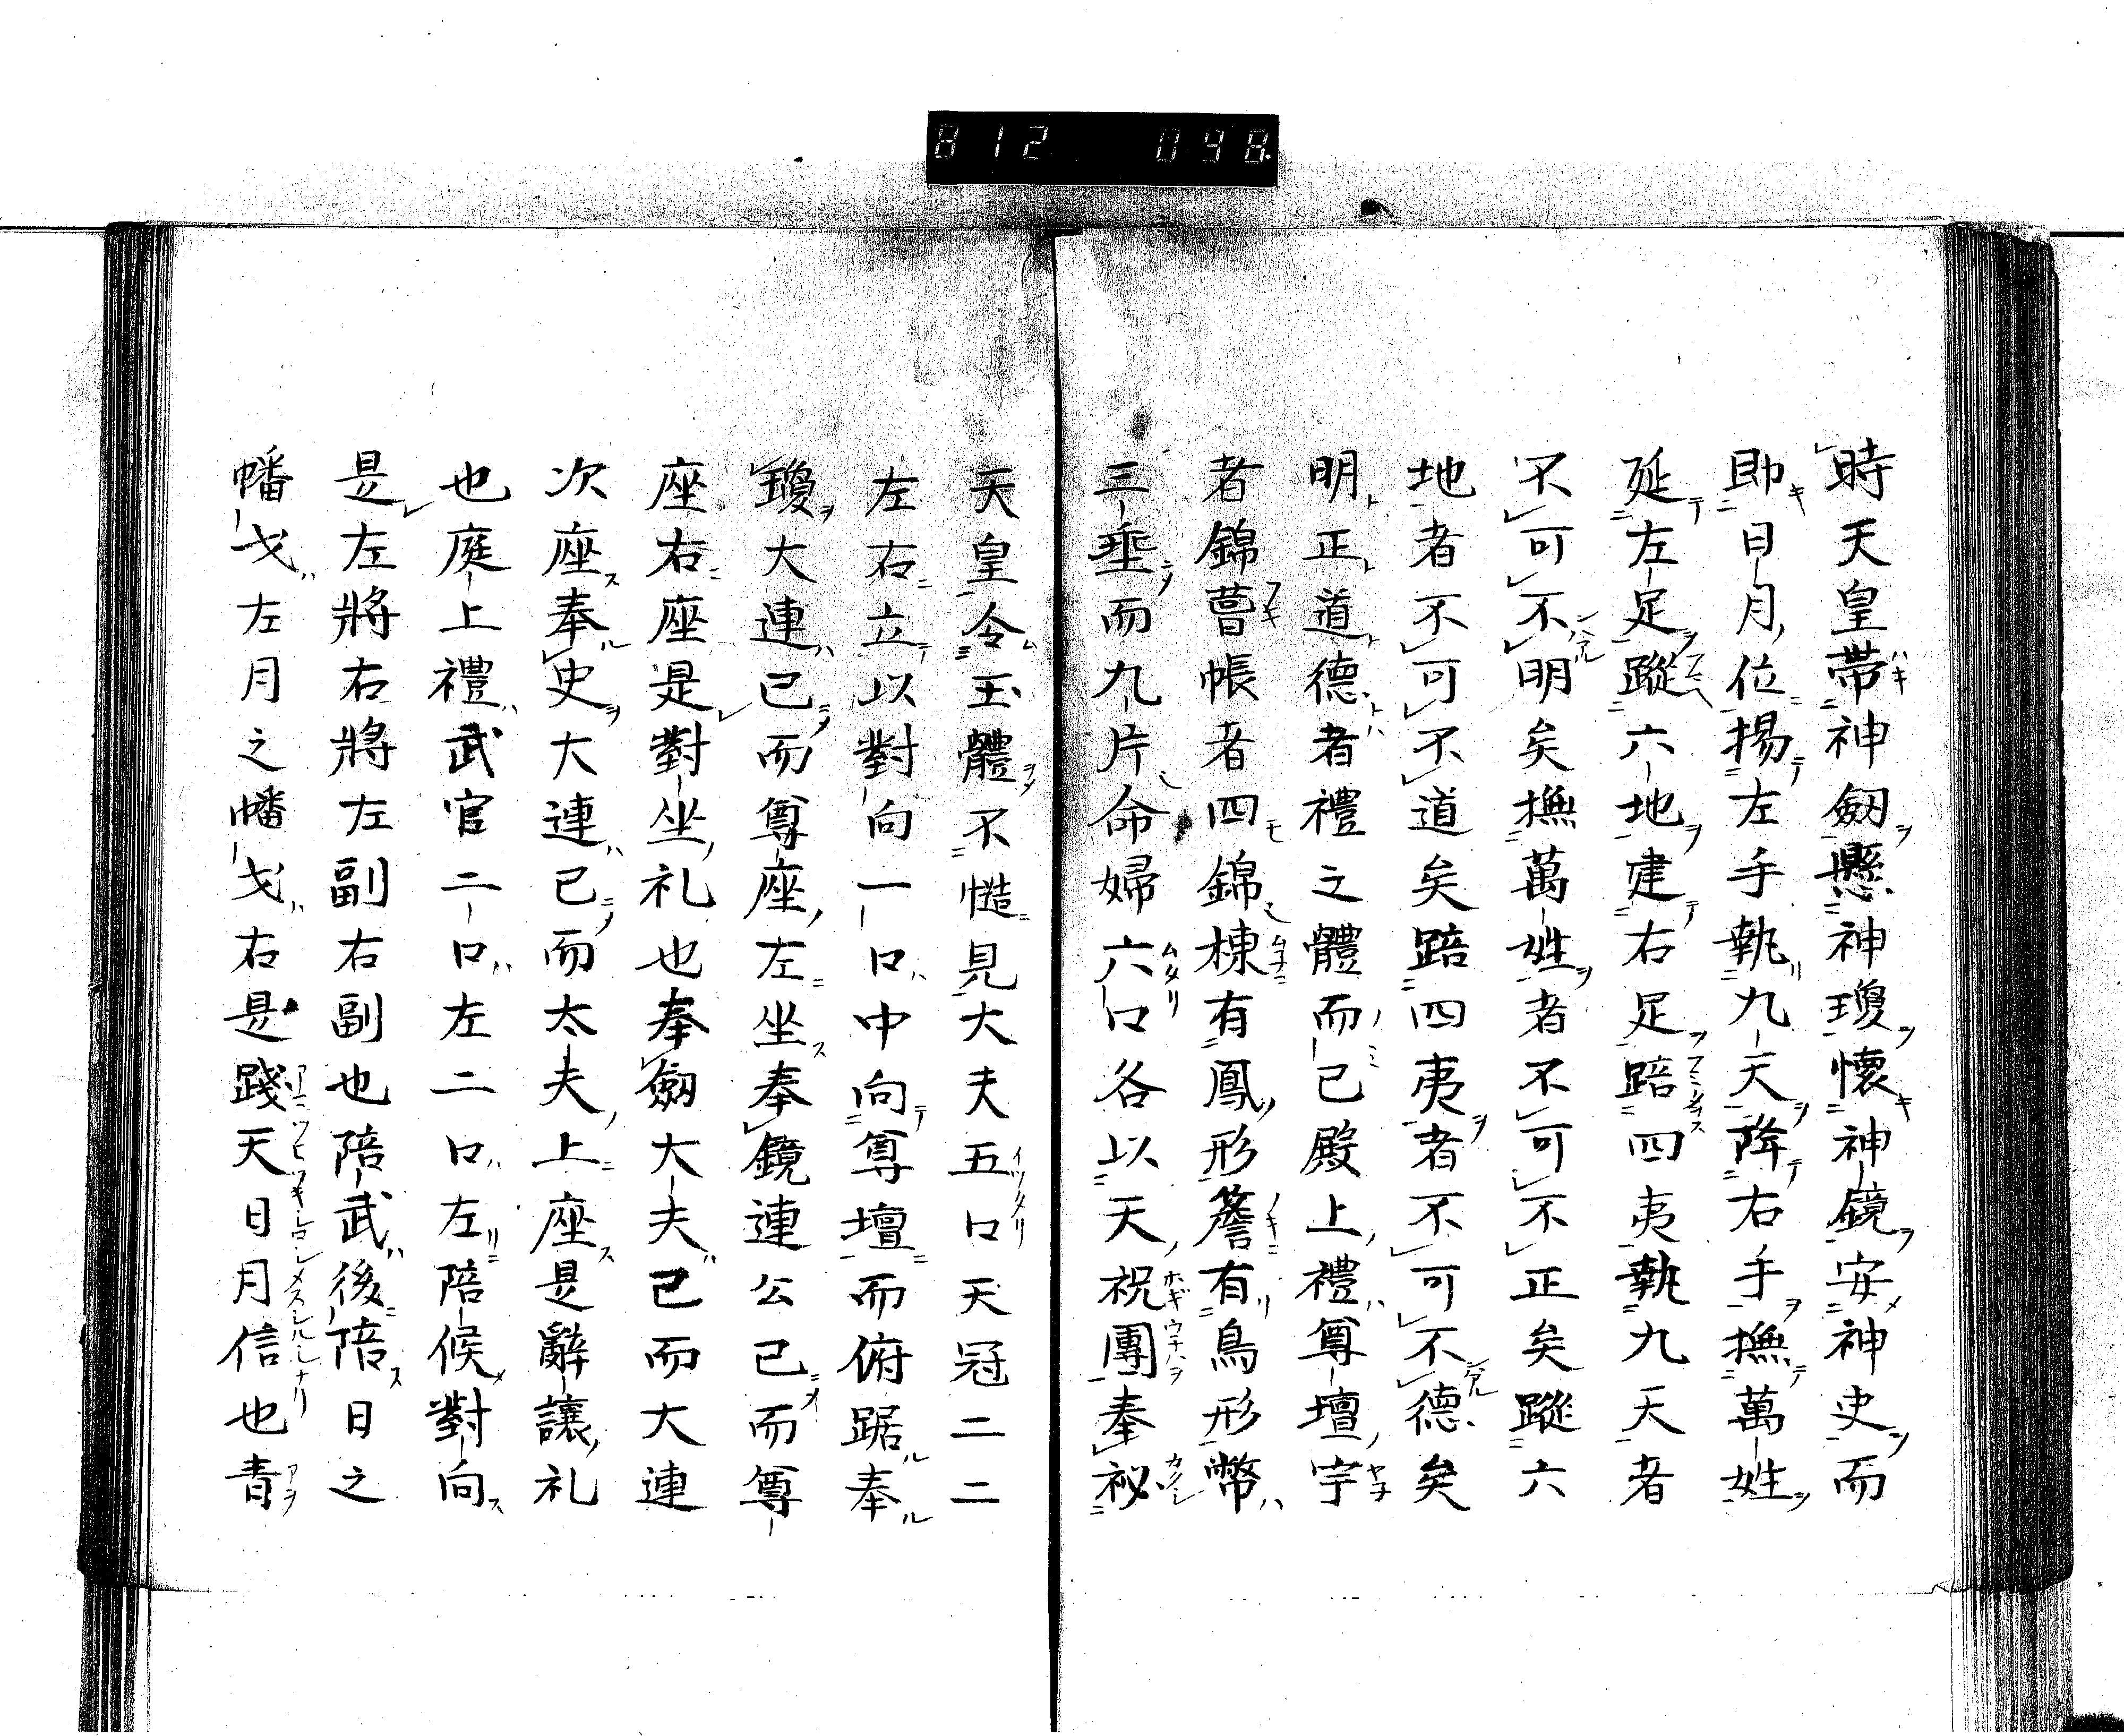 812 048
時天皇帶神劔懸神瓊懷神鏡安神史而
即日月位揚左手執九天降右手撫萬姓
延左足蹤六地建右足踣四夷執九天者
不可不明矣撫萬姓者不可不正矣蹤六
地者不可不道矣踣四夷者不可不德矣
明正道德者禮之體而已殿上禮尊壇宇
者錦蓸帳者四錦棟有鳳形簷有鳥形幣
三垂而九片命婦六口各以天祝團奉祕
天皇令玉體不慥見大夫五口天冠二二
左右立以對向一口中向尊壇而俯踞奉
瓊大連已而尊座左坐奉鏡連公已而尊
座右座是對坐礼也奉劔大夫已而大連
次座奉史大連已而太夫上座是辭讓礼
也庭上禮武官二口左二口左陪候對向
是左將右將左副右副也陪武後陪日之
幡戈左月之幡戈右是踐天日月信也青